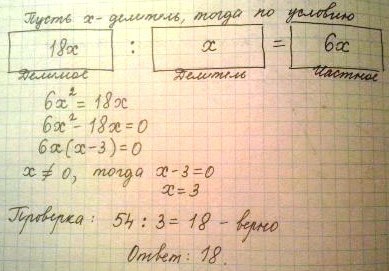 Пусть x - делитель, тогда по условию
18x : x = 6x
Делимое Делитель Частное
6x² = 18x
6x² - 18x = 0
6x(x-3) = 0
x ≠ 0, тогда x-3=0
x = 3
Проверка: 54 : 3 = 18 - верно
Ответ: 18.